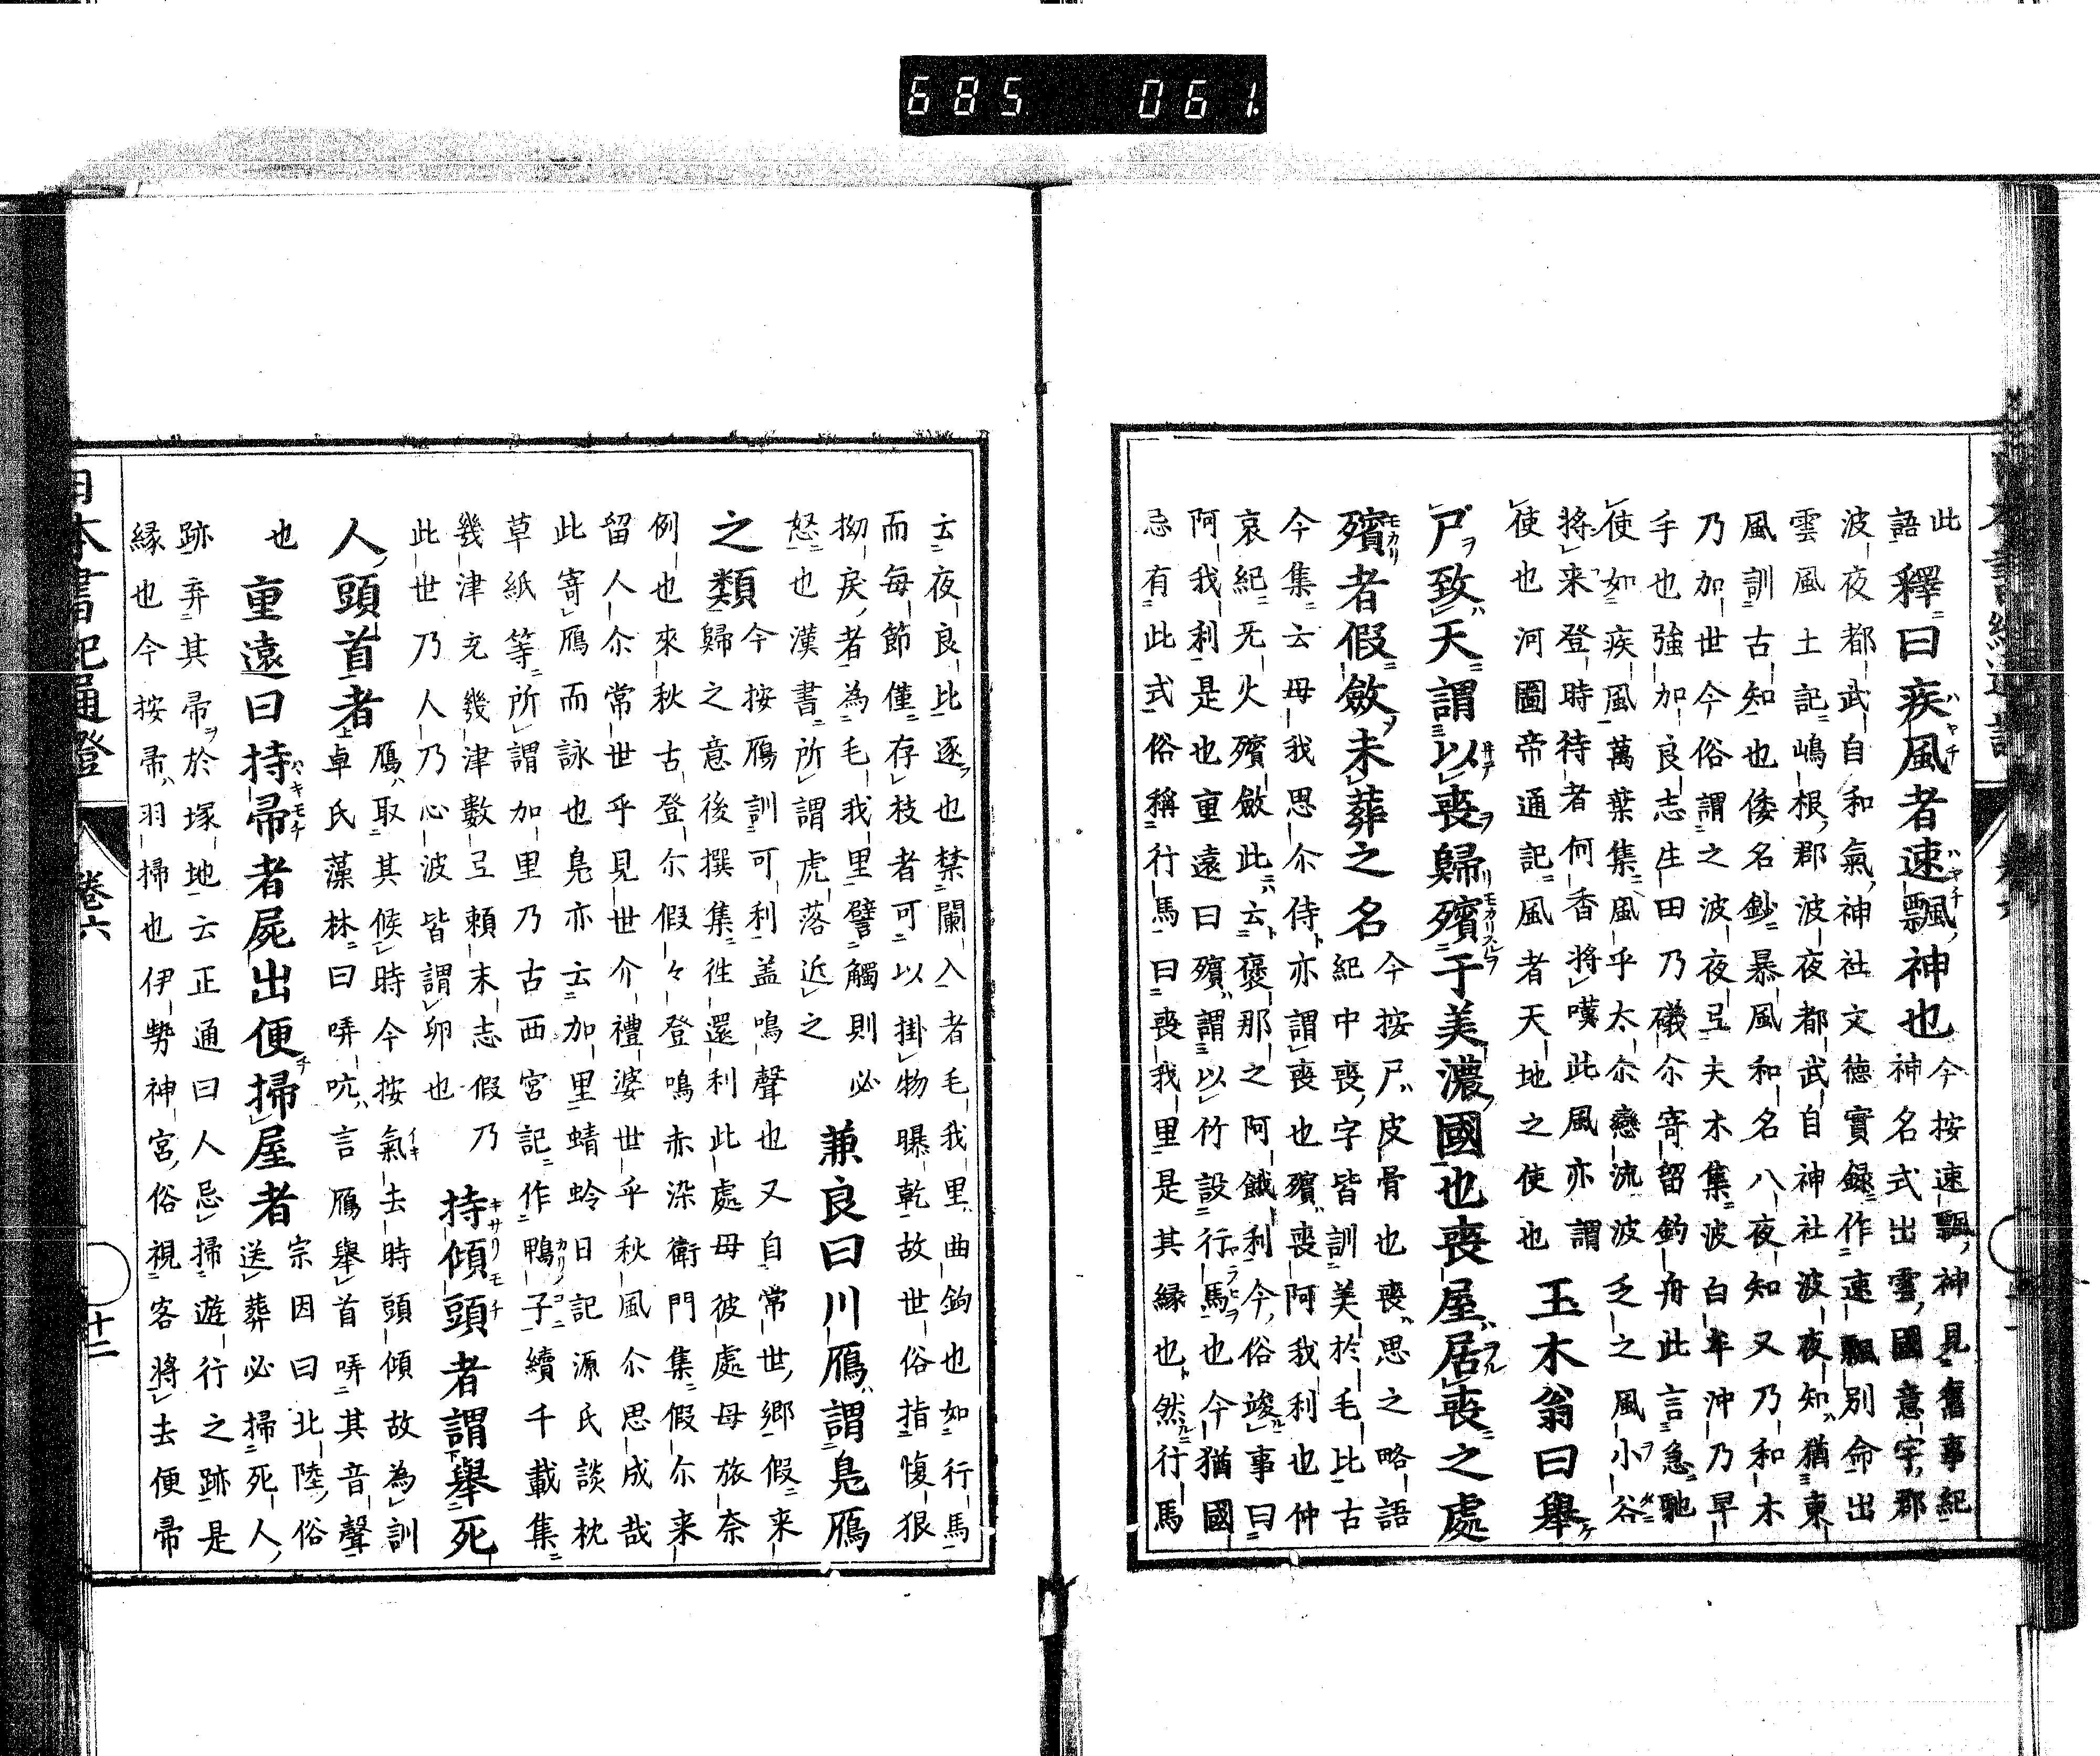 685 061
此語釋曰疾風者速飄神也今按速飄神見舊事紀
神名式出雲國意宇郡
波夜都武自和氣神社文德實録作速飄別命出
雲風土記嶋根郡波夜都武自神社波夜知猶東
風訓古知也倭名鈔暴風和名八夜知又乃和木
乃加世今俗謂之波夜弖夫木集波白牟沖乃早
手也強加良志生田乃礒尓寄留釣舟此言急馳
使如疾風萬葉集風乎太尓戀流波乏之風小谷
將来登時待者何香將嘆此風亦謂
使也河圖帝通記風者天地之使也
玉木翁曰舉
尸致天謂以喪歸殯于美濃國也喪屋居喪之處
殯者假斂未葬之名今按尸皮骨也喪思之略語
紀中喪字皆訓美於毛比古
今集云母我思尓侍亦謂喪也殯喪阿我利也仲
哀紀旡火殯斂此云褒那之阿餓利今俗竣事曰
阿我利是也重遠曰殯謂以竹設行馬也今猶國
忌有此式俗稱行馬曰喪我里是其縁也然行馬
云夜良比逐也禁闌入者毛我里曲鉤也如行馬
而毎節僅存枝者可以掛物曝乾故世俗指愎狠
拗戻者為毛我里譬觸則必
怒也漢書所謂虎落近之
兼良曰川鴈謂鳧鴈
之類今按鴈訓可利盖鳴聲也又自常世郷假来
歸之意後撰集徃還利此處母彼處母旅奈
例也來秋古登尓假々登鳴亦染衛門集假尓来
留人尓常世乎見世介禮婆世乎秋風尓思成哉
此寄鴈而詠也鳧亦云加里蜻蛉日記源氏談枕
草紙等所謂加里乃古西宮記作鴨子續千載集
幾津充幾津數弖頼末志假乃
此世乃人乃心波皆謂卵也
持傾頭者謂舉死
人頭首者鴈取其候時今按氣去時頭傾故為訓
卓氏藻林曰哢吭言鴈舉首哢其音聲
也
重遠曰持帚者屍出便掃屋者宗因曰北陸俗
送葬必掃死人
跡弃其帚於塚地云正通曰人忌掃遊行之跡是
縁也今按帚羽掃也伊勢神宮俗視客將去便帚
日本書紀通證
卷六
十二